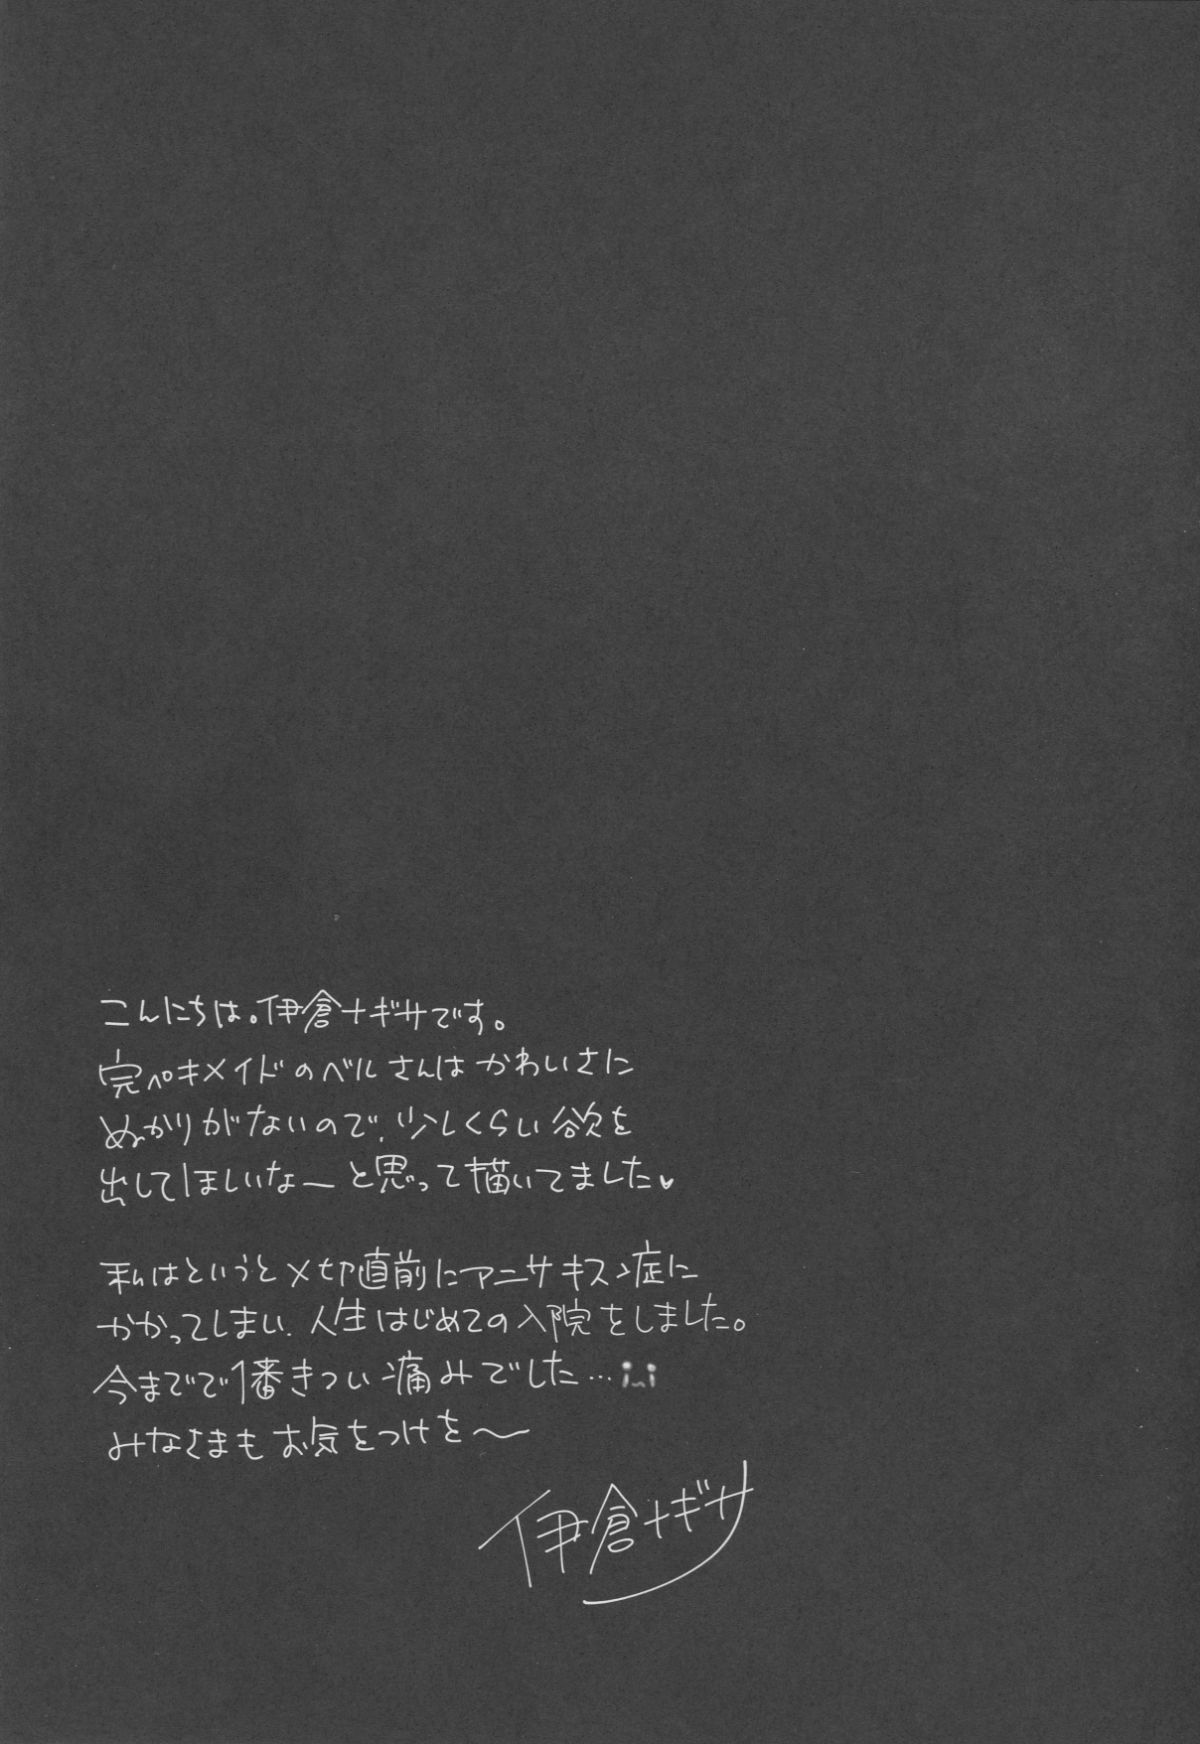 こんにちは。伊倉ナギサです。
完ペキメイドのベルさんはかわいさに
ぬかりがないので、少しくらい欲を
出してほしいなーと思って描いてました♥
私はというと〆切直前にアニサキス症に
かかってしまい、人生はじめての入院をしました。
今までで1番きつい痛みでした…;~;
みなさまもお気をつけを〜
伊倉ナギサ